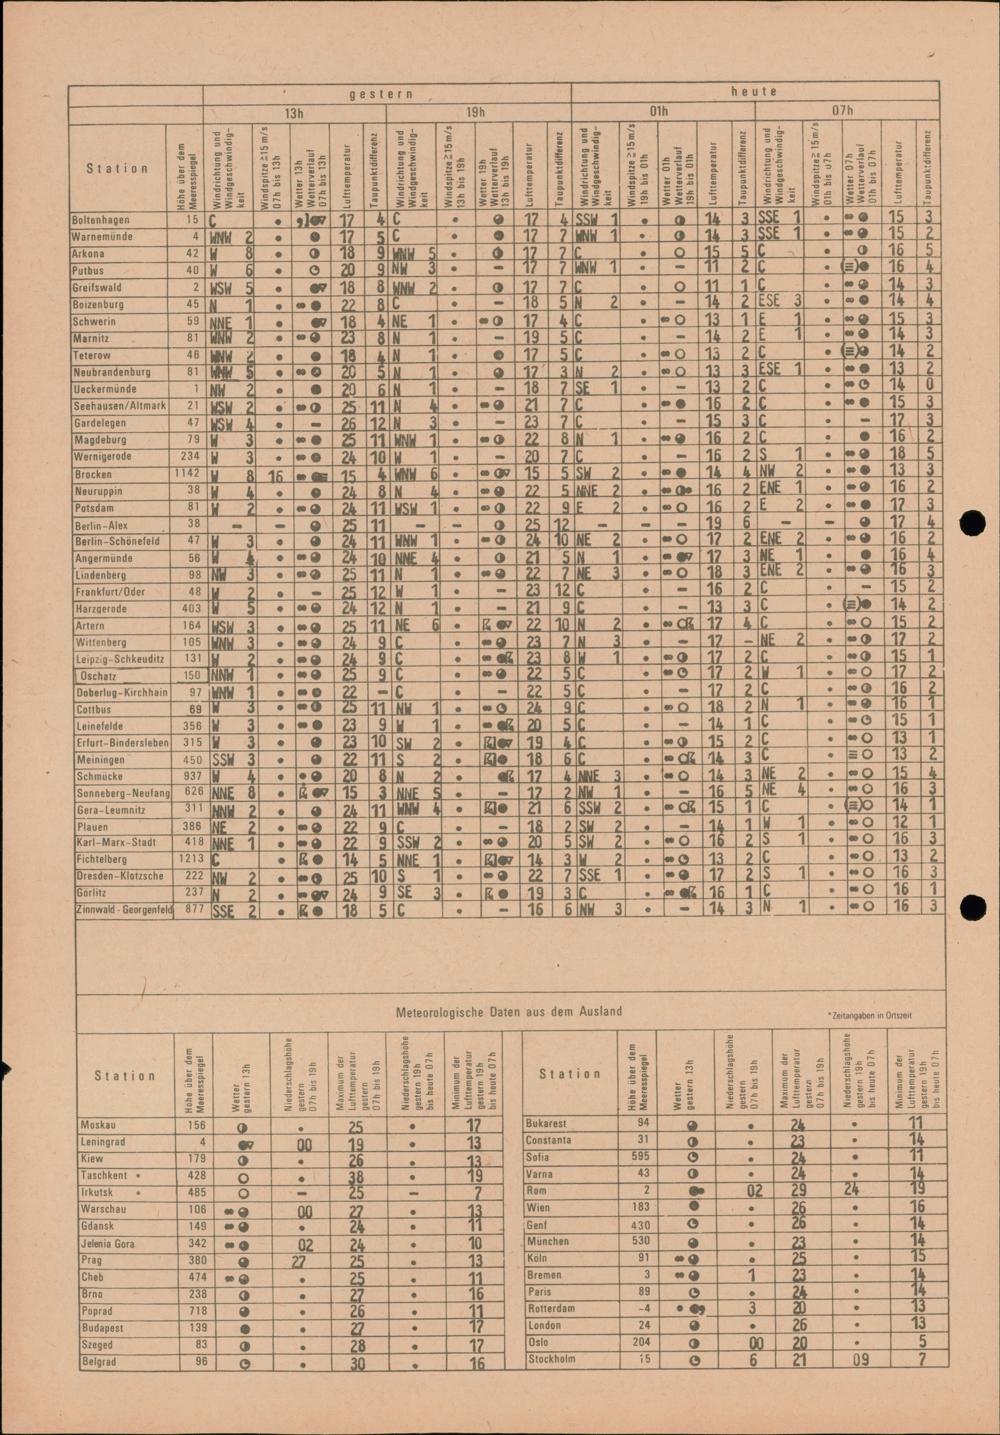 gestern heute
13h 19h 01h 07h
Station
Höhe über dem Meeresspiegel
Windrichtung und Windgeschwindig-keit
Windspitze ≥ 15 m/s 07h bis 13h
Wetter 13h Wetterverlauf 07h bis 13h
Lufttemperatur
Taupunktdifferenz
Windrichtung und Windgeschwindig-keit
Windspitze ≥ 15 m/s 13h bis 19h
Wetter 19h Wetterverlauf 13h bis 19h
Lufttemperatur
Taupunktdifferenz
Windrichtung und Windgeschwindig-keit
Windspitze ≥ 15 m/s 19h bis 01h
Wetter 01h Wetterverlauf 19h bis 01h
Lufttemperatur
Taupunktdifferenz
Windrichtung und Windgeschwindig-keit
Windspitze ≥ 15 m/s 01h bis 07h
Wetter 07h Wetterverlauf 01h bis 07h
Lufttemperatur
Taupunktdifferenz
Boltenhagen 15 C 17 4 C 17 4 SSW 1 14 3 SSE 1 15 3
Warnemünde 4 WNW 2 17 5 C 17 7 WNW 1 14 3 SSE 1 15 2
Arkona 42 W 8 18 9 WNW 5 17 7 C 15 5 C 16 5
Putbus 40 W 6 20 9 NW 3 17 7 WNW 1 11 2 C 16 4
Greifswald 2 WSW 5 18 8 WNW 2 17 7 C 11 1 C 14 3
Boizenburg 45 N 1 22 8 C 18 5 N 2 14 2 ESE 3 14 4
Schwerin 59 NNE 1 18 4 NE 1 17 4 C 13 1 E 1 15 3
Marnitz 81 WNW 2 23 8 N 1 19 5 C 14 2 E 1 14 3
Teterow 46 WNW 2 18 4 N 1 17 5 C 13 2 C 14 2
Neubrandenburg 81 WNW 5 20 5 N 1 17 3 N 2 13 3 ESE 1 13 2
Ueckermünde 1 NW 2 20 6 N 1 18 7 SE 1 13 2 C 14 0
Seehausen/Altmark 21 WSW 2 25 11 N 4 21 7 C 16 2 C 15 3
Gardelegen 47 WSW 4 26 12 N 3 23 7 C 15 3 C 17 3
Magdeburg 79 W 3 25 11 WNW 1 22 8 N 1 16 2 C 16 2
Wernigerode 234 W 3 24 10 W 1 20 7 C 16 2 S 1 18 5
Brocken 1142 W 8 16 15 4 WNW 6 15 5 SW 2 14 4 NW 2 13 3
Neuruppin 38 W 4 24 8 N 4 22 5 NNE 2 16 2 ENE 1 16 2
Potsdam 81 W 2 24 11 WSW 1 22 9 E 2 16 2 E 2 17 3
Berlin-Alex 38 – – 25 11 – – 25 12 – – 19 6 – – 17 4
Berlin-Schönefeld 47 W 3 24 11 WNW 1 24 10 NE 2 17 2 ENE 2 16 2
Angermünde 56 W 4 24 10 NNE 4 21 5 N 1 17 3 NE 1 16 4
Lindenberg 98 NW 3 25 11 N 1 22 7 NE 3 18 3 ENE 2 16 3
Frankfurt/Oder 48 W 2 25 12 W 1 23 12 C 16 2 C 15 2
Harzgerode 403 W 5 24 12 N 1 21 9 C 13 3 C 14 2
Artern 164 WSW 3 25 11 NE 6 22 10 N 2 17 4 C 15 2
Wittenberg 105 WNW 3 24 9 C 23 7 N 3 17 – NE 2 17 2
Leipzig-Schkeuditz 131 W 2 24 9 C 23 8 W 1 17 2 C 15 1
Oschatz 150 NNW 1 25 9 C 22 5 C 17 2 W 1 17 2
Doberlug-Kirchhain 97 WNW 1 22 – C 22 5 C 17 2 C 16 2
Cottbus 69 W 3 25 11 NW 1 24 9 C 18 2 N 1 16 1
Leinefelde 356 W 3 23 9 W 1 20 5 C 14 1 C 15 1
Erfurt-Bindersleben 315 W 3 23 10 SW 2 19 4 C 15 2 C 13 1
Meiningen 450 SSW 3 22 11 S 2 18 6 C 14 3 C 13 2
Schmücke 937 W 4 20 8 N 2 17 4 NNE 3 14 3 NE 2 15 4
Sonneberg-Neufang 626 NNE 8 15 3 NNE 5 17 2 NW 1 16 5 NE 4 16 3
Gera-Leumnitz 311 NNW 2 24 11 WNW 4 21 6 SSW 2 15 1 C 14 1
Plauen 386 NE 2 22 9 C 18 2 SW 2 14 1 W 1 12 1
Karl-Marx-Stadt 418 NNE 1 22 9 SSW 2 20 5 SW 2 16 2 S 1 16 3
Fichtelberg 1213 C 14 5 NNE 1 14 3 W 2 13 2 C 13 2
Dresden-Klotzsche 222 NW 2 25 10 S 1 22 7 SSE 1 17 2 S 1 16 3
Görlitz 237 N 2 24 9 SE 3 19 3 C 16 1 C 16 1
Zinnwald-Georgenfeld 877 SSE 2 18 5 C 16 6 NW 3 14 3 N 1 16 3
Meteorologische Daten aus dem Ausland
* Zeitangaben in Ortszeit
Station
Höhe über dem Meeresspiegel
Wetter gestern 13h
Niederschlagshöhe gestern 07h bis 19h
Maximum der Lufttemperatur gestern 07h bis 19h
Niederschlagshöhe gestern 19h bis heute 07h
Minimum der Lufttemperatur gestern 19h bis heute 07h
Moskau 156 25 17
Leningrad 4 00 19 13
Kiew 179 26 13
Taschkent * 428 38 19
Irkutsk * 485 – 25 – 7
Warschau 106 00 27 13
Gdansk 149 24 11
Jelenia Gora 342 02 24 10
Prag 380 27 25 13
Cheb 474 25 11
Brno 238 27 16
Poprad 718 26 11
Budapest 139 27 17
Szeged 83 28 17
Belgrad 96 30 16
Station
Höhe über dem Meeresspiegel
Wetter gestern 13h
Niederschlagshöhe gestern 07h bis 19h
Maximum der Lufttemperatur gestern 07h bis 19h
Niederschlagshöhe gestern 19h bis heute 07h
Minimum der Lufttemperatur gestern 19h bis heute 07h
Bukarest 94 24 11
Constanta 31 23 14
Sofia 595 24 11
Varna 43 24 14
Rom 2 02 29 24 19
Wien 183 26 16
Genf 430 26 14
München 530 23 14
Köln 91 25 15
Bremen 3 1 23 14
Paris 89 24 14
Rotterdam -4 3 20 13
London 24 26 13
Oslo 204 00 20 5
Stockholm 15 6 21 09 7